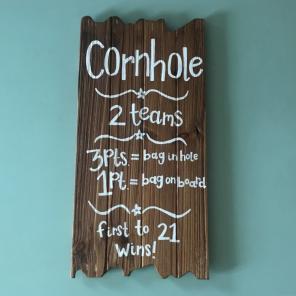 Cornhole
2 teams
3pts. = bag in hole
1pt. = bag on board
first to 21
wins!